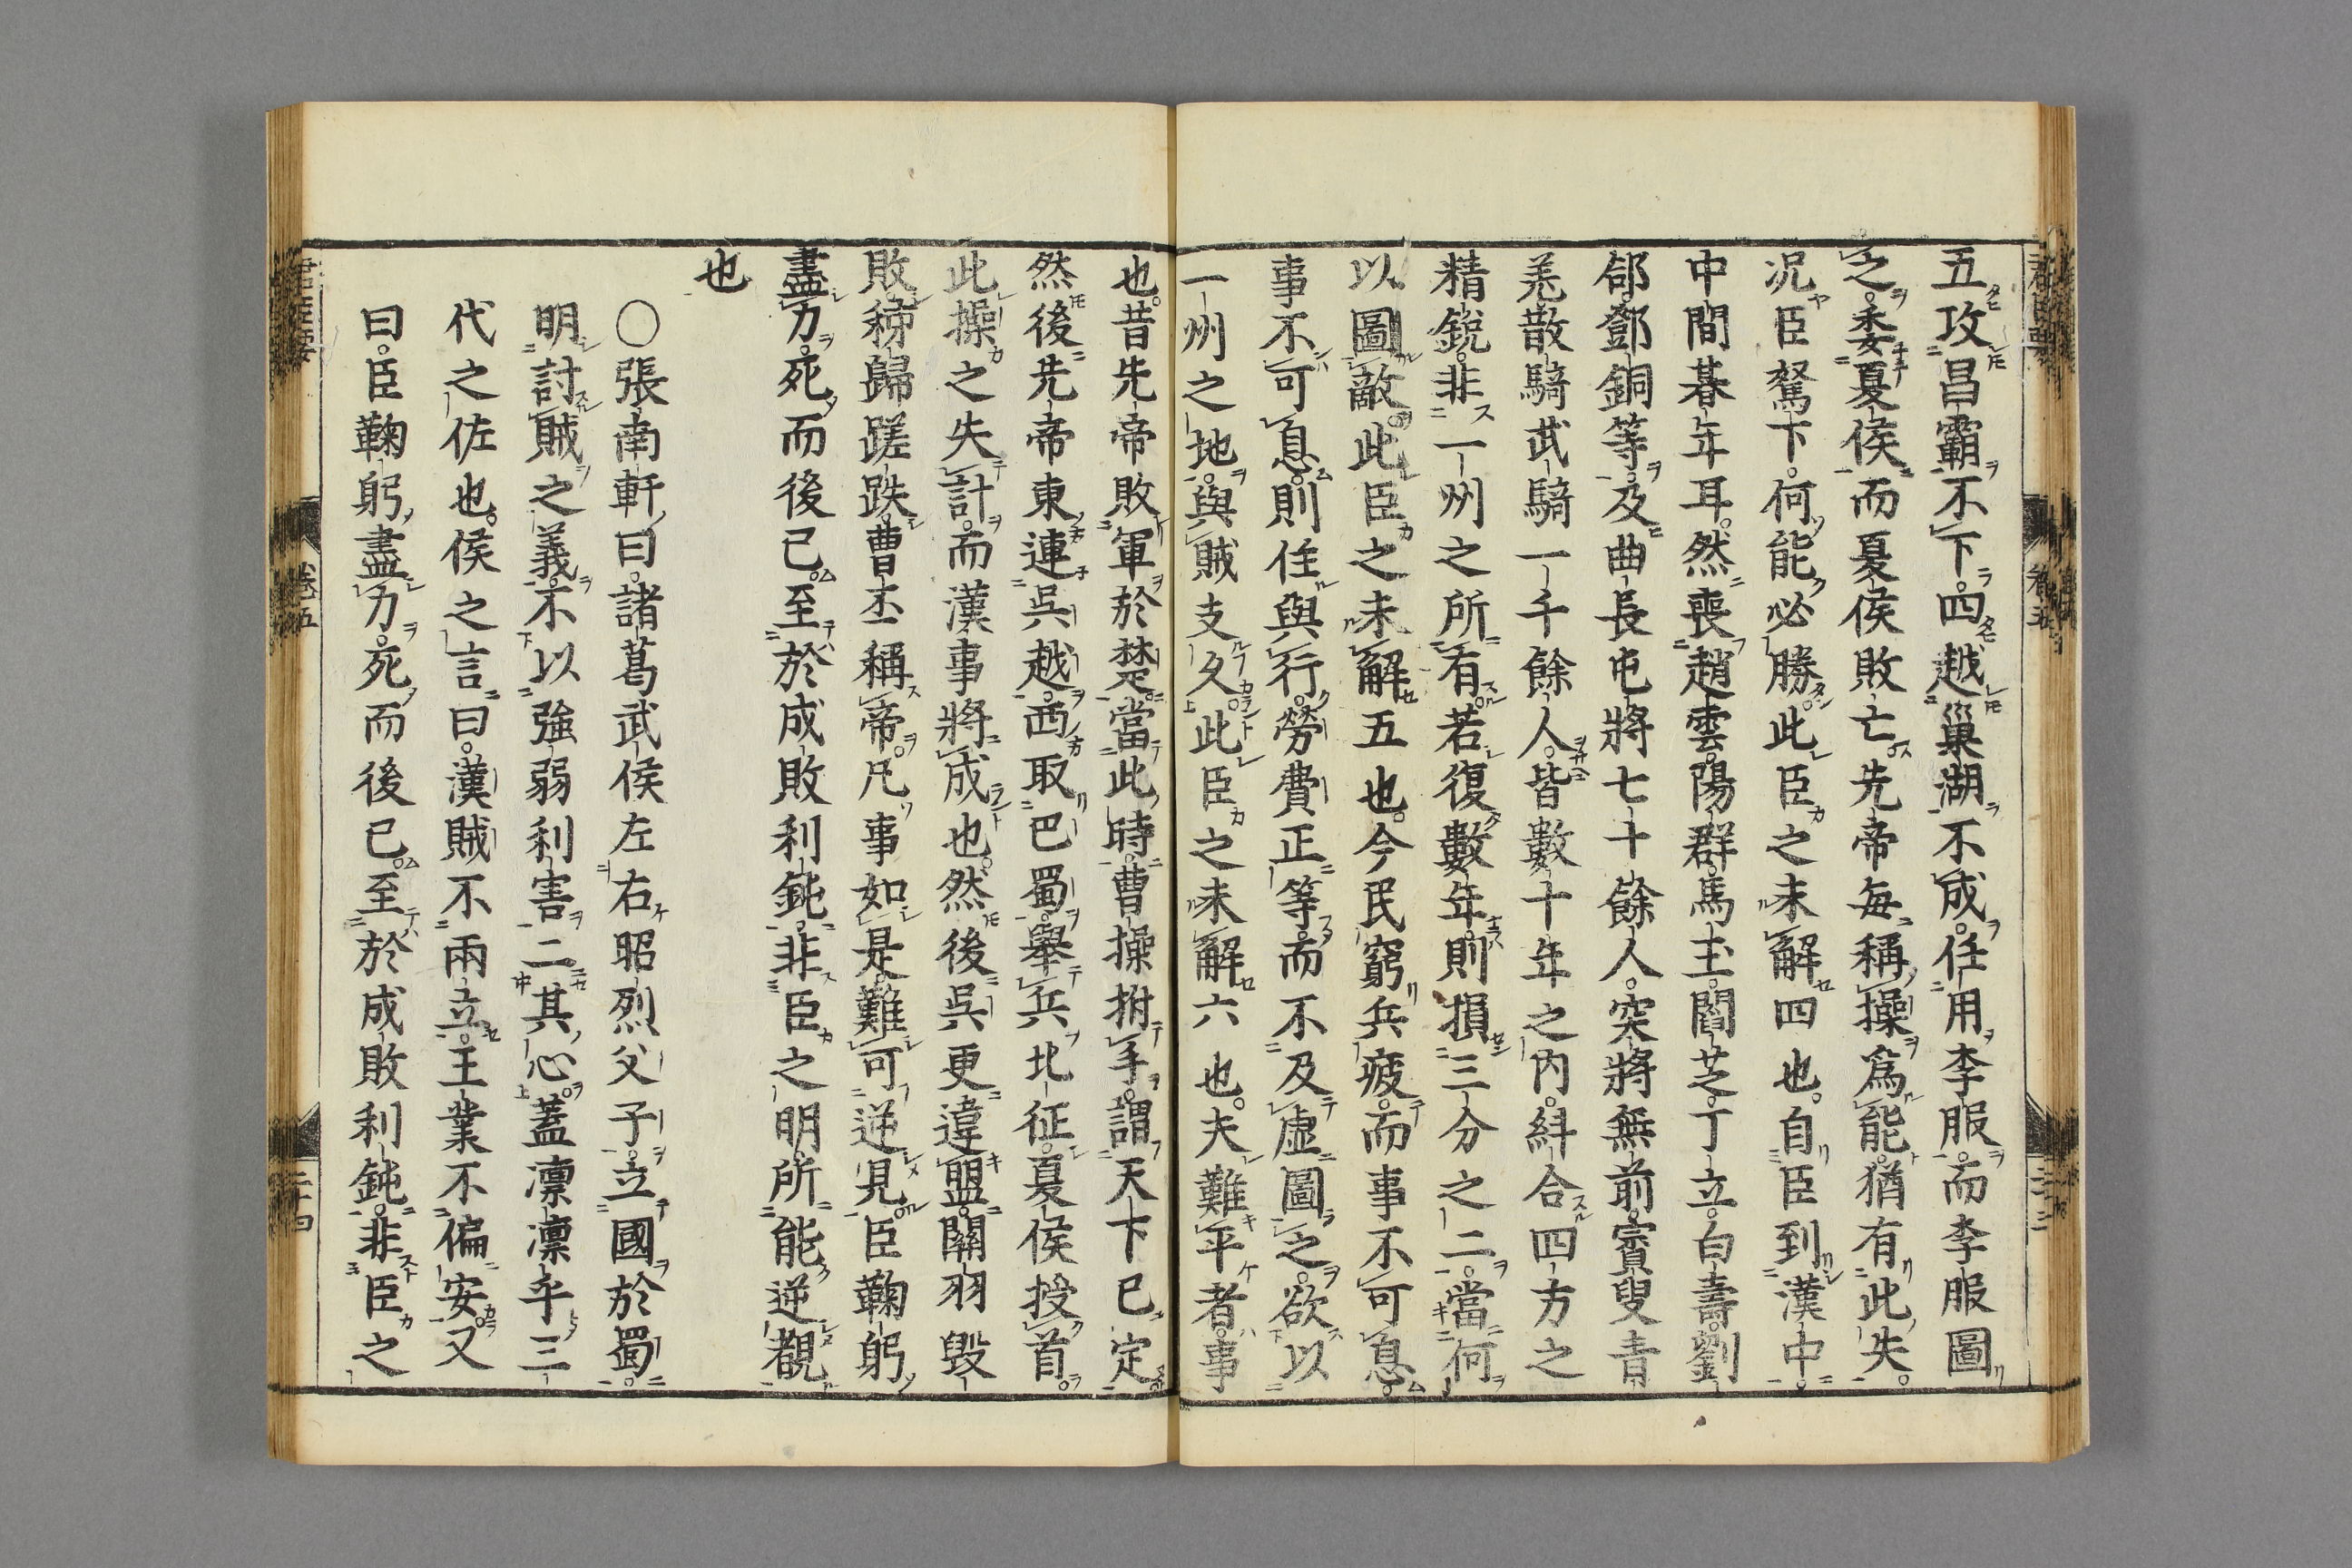 五攻昌霸不下四越巢湖不成任用李服而李服圖
之委夏侯而夏侯敗亡先帝每稱操爲能猶有此失
况臣駑下何能必勝此臣之未解四也自臣到漢中
中間朞年耳然喪趙雲陽群馬玉閻芝丁立白壽劉
郃鄧銅等及曲長屯將七十餘人突將無前賨叟青
羌散騎武騎一千餘人皆數十年之内糾合四方之
精銳非一州之所有若復數年則損三分之二當何
以圖敵此臣之未解五也今民窮兵疲而事不可息
事不可息則住與行勞費正等而不及虛圖之欲以
一州之地與賊支久此臣之未解六也夫難平者事
也昔先帝敗軍於楚當此時曹操拊手謂天下已定
然後先帝東連呉越西取巴蜀舉兵北征夏侯授首
此操之失計而漢事將成也然後呉更違盟關羽毀
敗秭歸蹉跌曹丕稱帝凡事如是難可逆見臣鞠躬
盡力死而後已至於成敗利鈍非臣之明所能逆覩
也
〇張南軒曰諸葛武侯左右昭烈父子立國於蜀
明討賊之義不以強弱利害二其心蓋凛凛乎三
代之佐也侯之言曰漢賊不兩立王業不偏安又
曰臣鞠躬盡力死而後已至於成敗利鈍非臣之
卷五
二十四